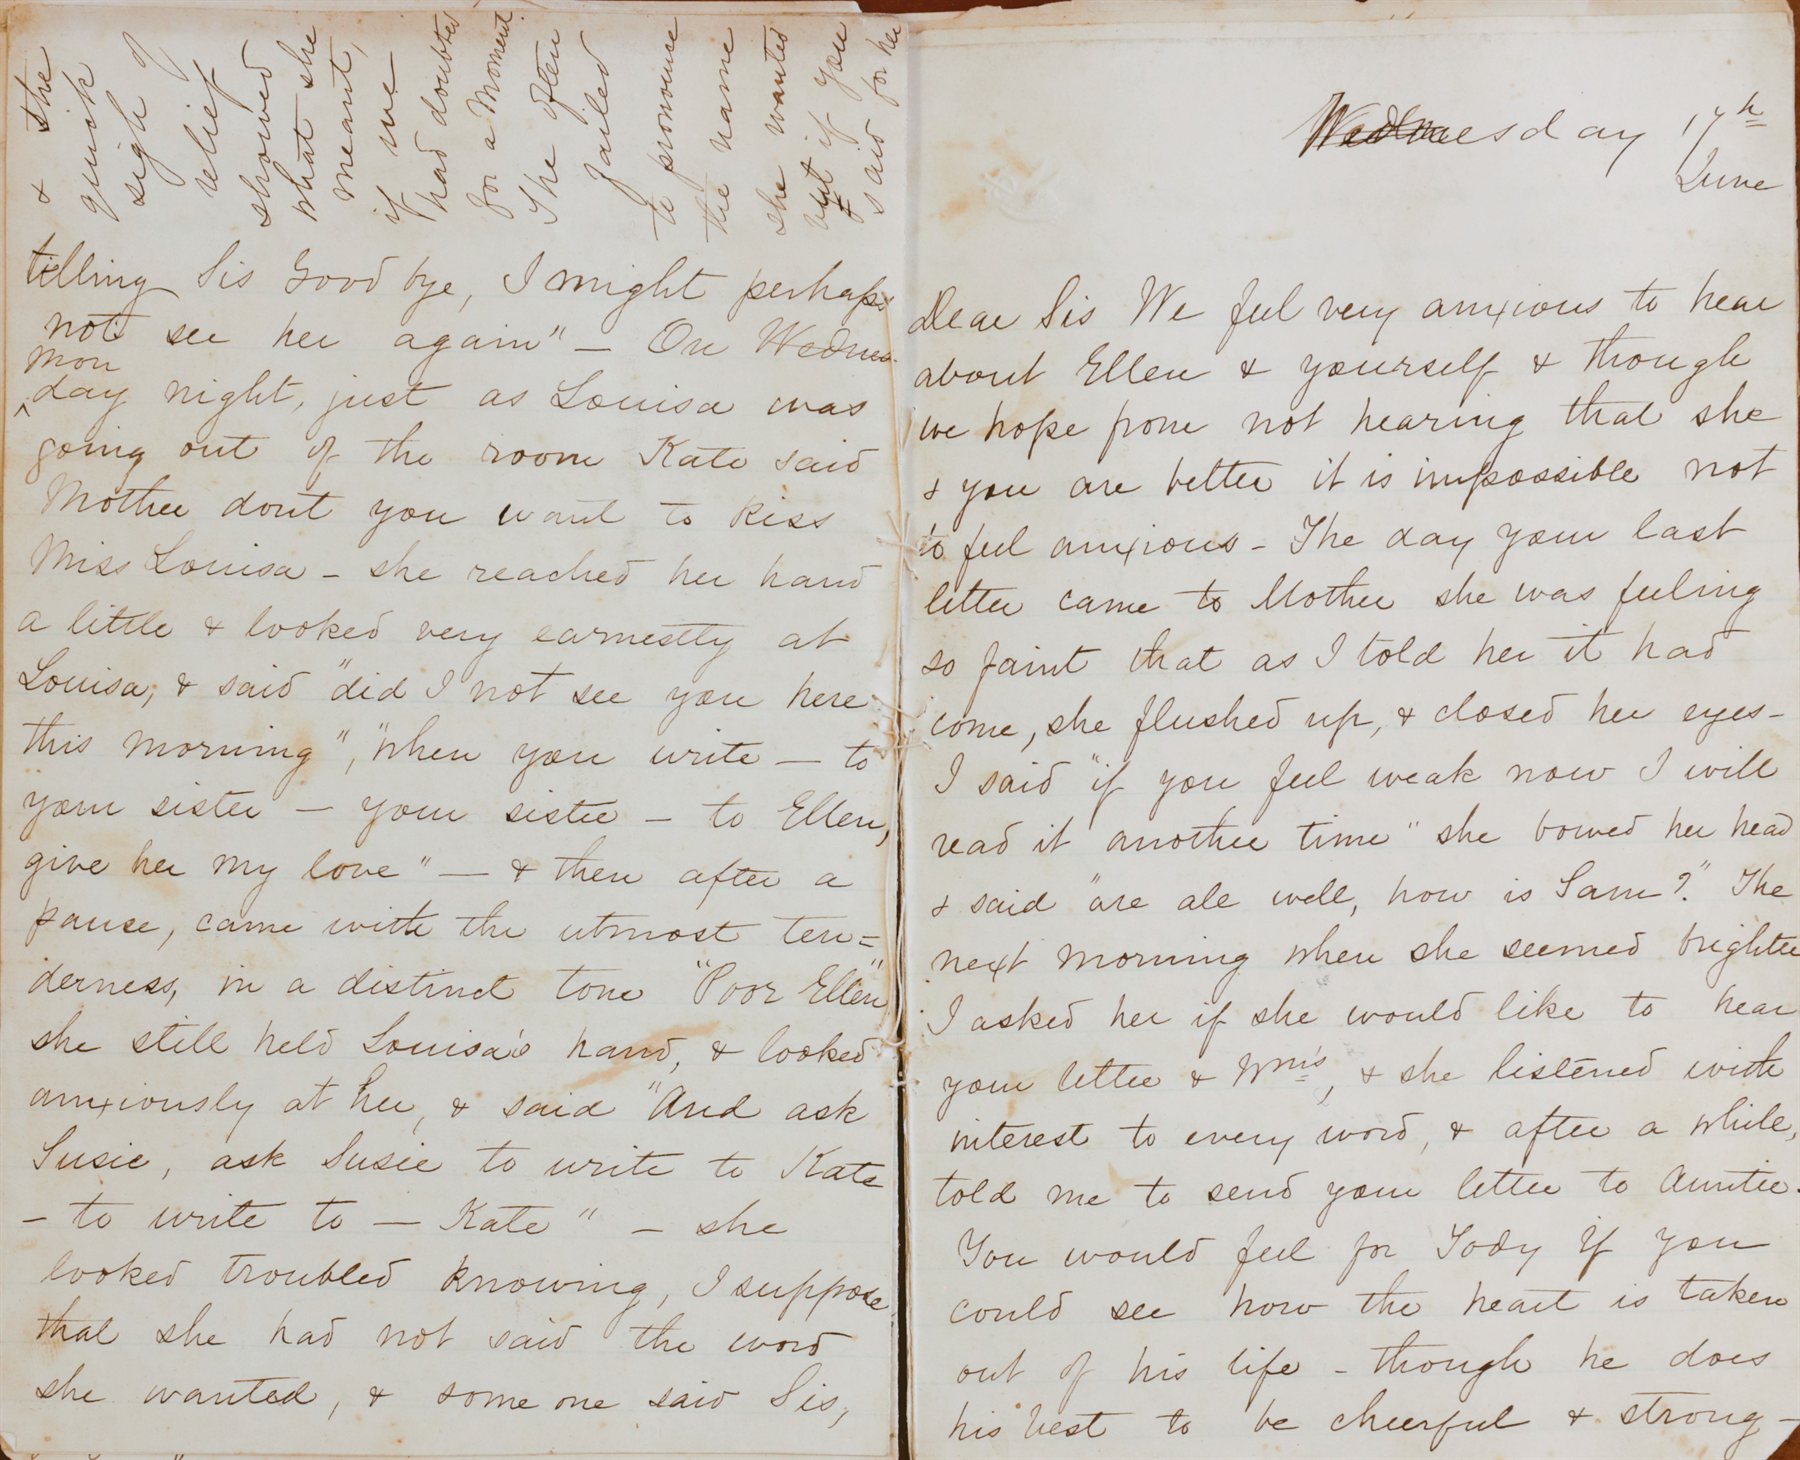 telling Sis Good bye, I might perhaps
not see her again" — On Wednes-
Mon
^day night, just as Louisa was
going out of the room Kate said
Mother dont you want to kiss
Miss Louisa - she reached her hand
a little & looked very earnestly at
Louisa, & said "did I not see you here
this morning", "when you write — to
your sister — your sister — to Ellen,
give her my love" — & then after a
pause, came with the utmost ten=
derness, in a distinct tone "Poor Ellen"
she still held Louisa's hand, & looked
anxiously at her, & said "And ask
Susie, ask Susie to write to Kate
- to write to — Kate" - she
looked troubled knowing, I suppose
that she had not said the word
she wanted, & some one said Sis,
& the
quick
sigh of
relief
showed
what she
meant,
if we
had doubted
for a moment.
She often
failed
to pronounce
the name
she wanted
but if you
said for her
Wednesday 17th
June
Dear Sis We feel very anxious to hear
about Ellen & yourself & though
we hope from not hearing that she
& you are better it is impossible not
to feel anxious - The day your last
letter came to Mother she was feeling
so faint that as I told her it had
come, she flushed up, & closed her eyes -
I said "if you feel weak now I will
read it another time" she bowed her head
& said "are all well, how is Sam?" The
next morning when she seemed brighter
I asked her if she would like to hear
your letter & Wm's, & she listened with
interest to every word, & after a while,
told me to send your letter to Auntie.
You would feel for Tody if you
could see how the heart is taken
out of his life - though he does
his best to be cheerful & strong -